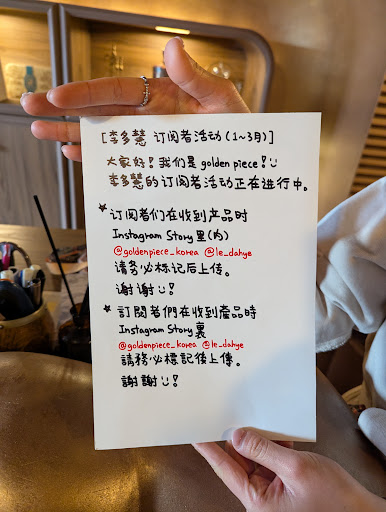 [李多慧 订阅者活动(1~3月)]
大家好!我们是 golden piece!
李多慧的订阅者活动正在进行中。
★ 订阅者们在收到产品时
Instagram Story 里(内)
@goldenpiece_korea @le_dahye
请务必标记后上传。
谢谢!
★ 訂閱者們在收到產品時
Instagram Story 裏
@goldenpiece_korea @le_dahye
請務必標記後上傳。
謝謝!